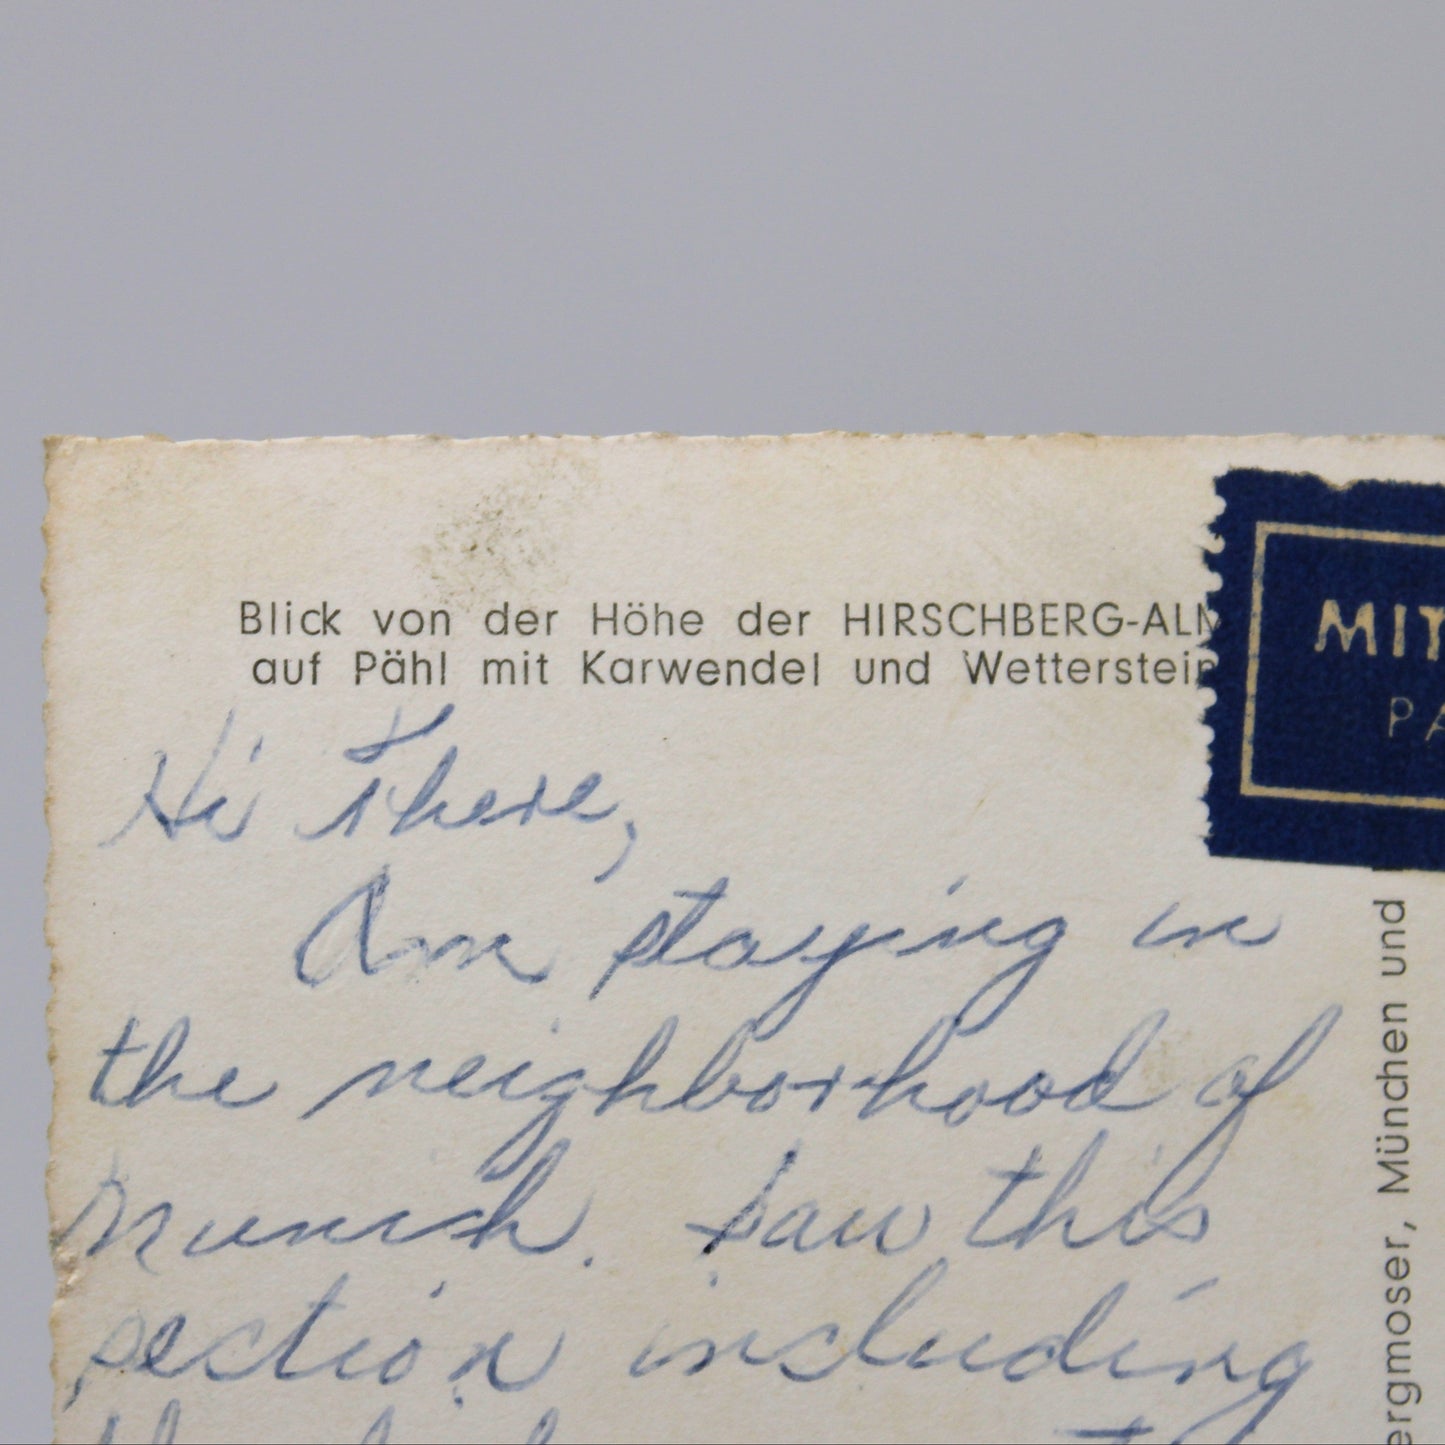 Blick von der Höhe der HIRSCHBERG-ALM
auf Pähl mit Karwendel und Wetterstein
MIT
PA
Hi There,
Am staying in
the neighborhood of
Munich. Saw this
section including
ergmoser, München und